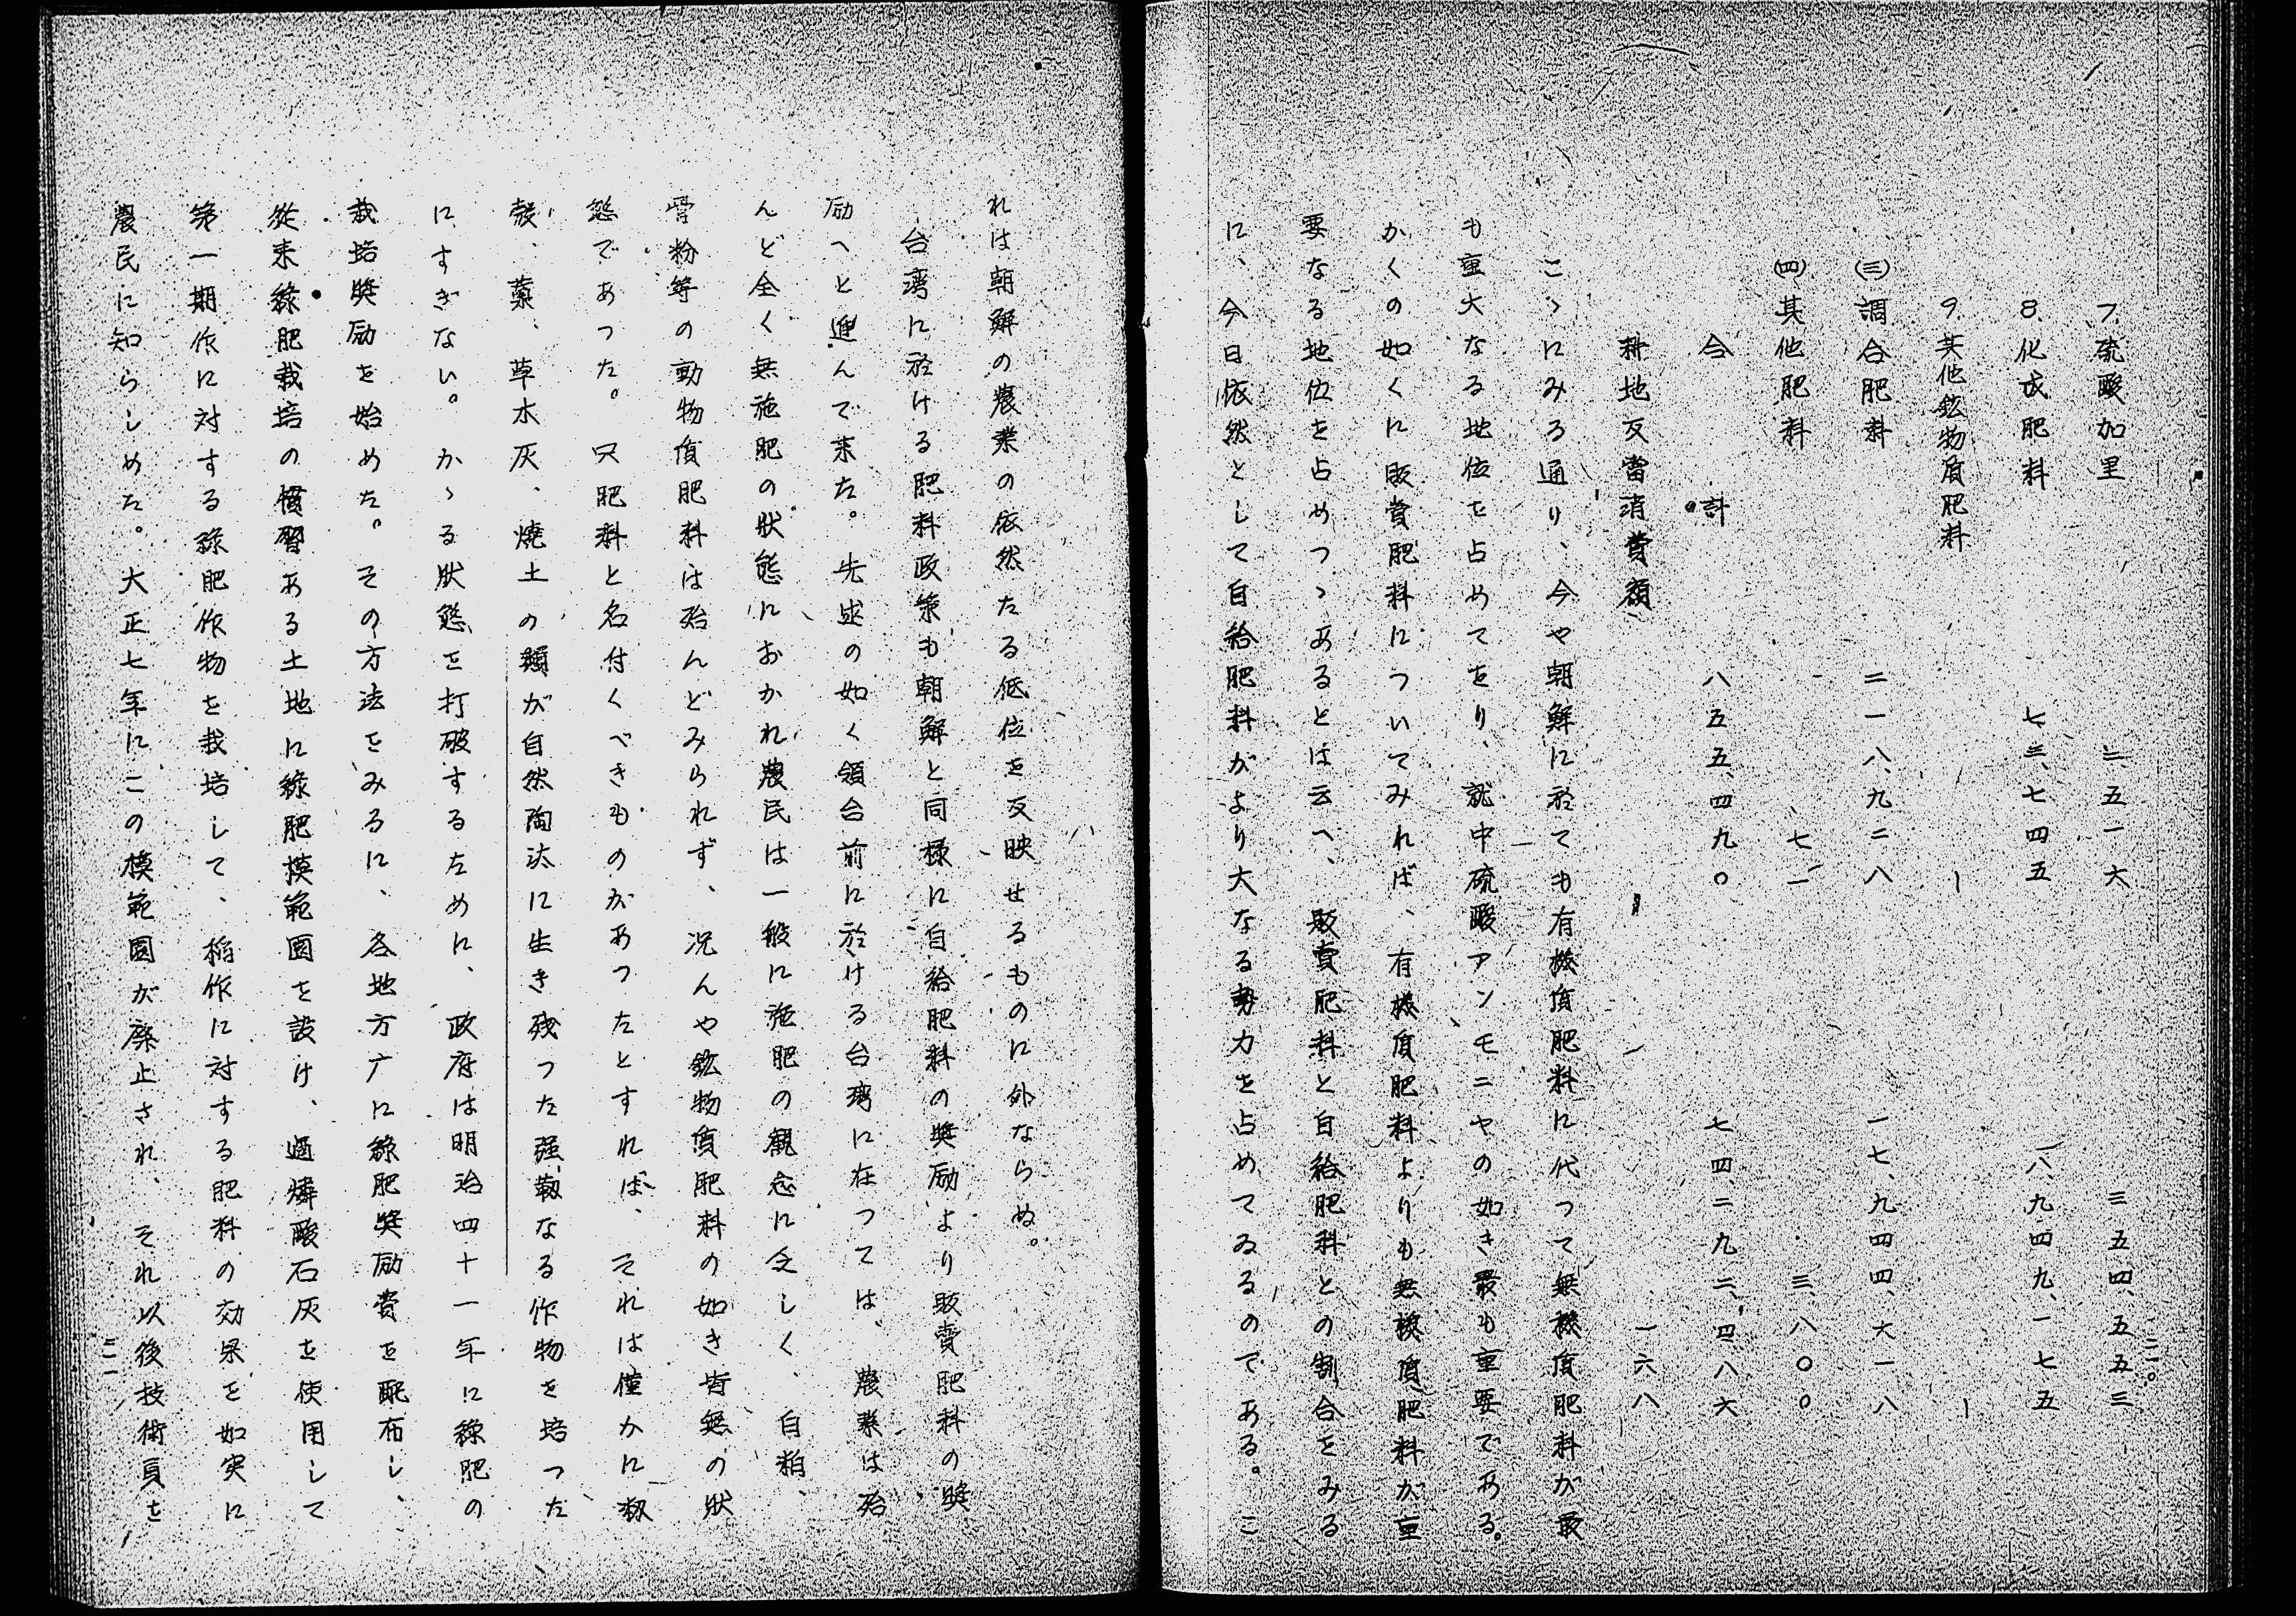 二〇
7.硫酸加里　二、五一六　三五四、五五三
8.化成肥料　七三、七四五　一八、九四九、一七五
9.其他鉱物質肥料　ー　ー
(三)調合肥料　二一八、九二八　一七、九四四、六一八
(四)其他肥料　七一　三、八〇〇
合計　八五五、四九〇　七四、二九二、四八六
耕地反當消費額　一六八
こゝにみる通り、今や朝鮮に於ても有機質肥料に代つて無機質肥料が最
も重大なる地位を占めてをり、就中硫酸アンモニヤの如き最も重要である。
かくの如くに販賣肥料についてみれば、有機質肥料よりも無機質肥料が重
要なる地位を占めつゝあるとは云へ、販賣肥料と自給肥料との割合をみる
に、今日依然として自給肥料がより大なる勢力を占めてゐるのである。こ
れは朝鮮の農業の依然たる低位を反映せるものに外ならぬ。
台湾に於ける肥料政策も朝鮮と同様に自給肥料の奨励より販賣肥料の奨
励へと進んで来た。先述の如く領台前に於ける台湾に在つては、農業は殆
んど全く無施肥の狀態におかれ農民は一般に施肥の観念に乏しく、自粕、
骨粉等の動物質肥料は殆んどみられず、況んや鉱物質肥料の如き皆無の狀
態であつた。只肥料と名付くべきものがあつたとすれば、それは僅かに籾
殻、藁、草木灰、燒土の類が自然陶汰に生き残つた强靱なる作物を培つた
にすぎない。かゝる狀態を打破するために、政府は明治四十一年に綠肥の
栽培奬励を始めた。その方法をみるに、各地方庁に綠肥奬励費を配布し、
從来綠肥栽培の慣習ある土地に綠肥模範園を設け、過燐酸石灰を使用して
第一期作に対する綠肥作物を栽培して、稲作に対する肥料の効果を如実に
農民に知らしめた。大正七年にこの模範園が廃止され、それ以後技術員を
二一